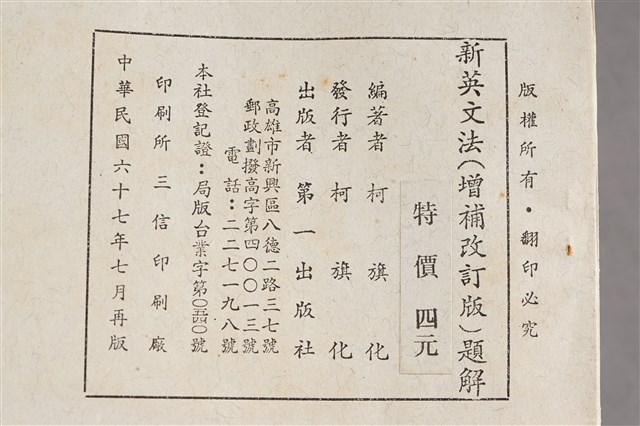 版權所有・翻印必究
新英文法(增補改訂版)題解
特價 四元
編著者 柯旗化
發行者 柯旗化
出版者 第一出版社
高雄市新興區八德二路三七號
郵政劃撥高字第四〇〇一三號
電話：二二七一九八號
本社登記證：局版台業字第〇五四〇號
印刷所 三信印刷廠
中華民國六十七年七月再版